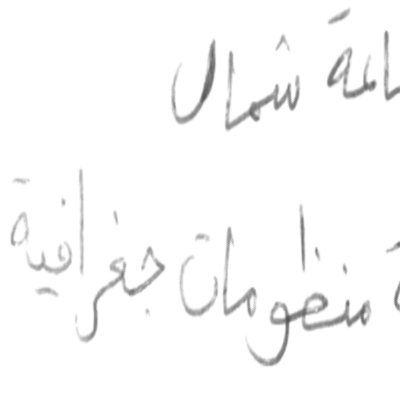 شمال
منظومات جغرافية